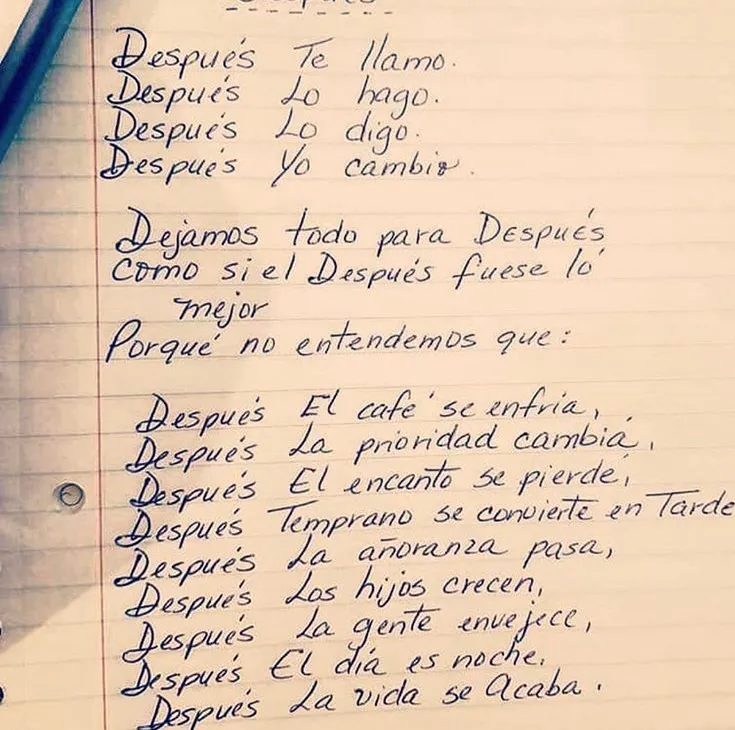 Después Te llamo.
Después Lo hago.
Después Lo digo.
Después Yo cambio.
Dejamos todo para Después
como si el Después fuese lo
mejor
Porqué no entendemos que:
Después El café se enfría,
Después La prioridad cambiá,
Después El encanto se pierde,
Después Temprano se convierte en Tarde
Después La añoranza pasa,
Después Los hijos crecen,
Después La gente envejece,
Después El día es noche.
Después La vida se Acaba.